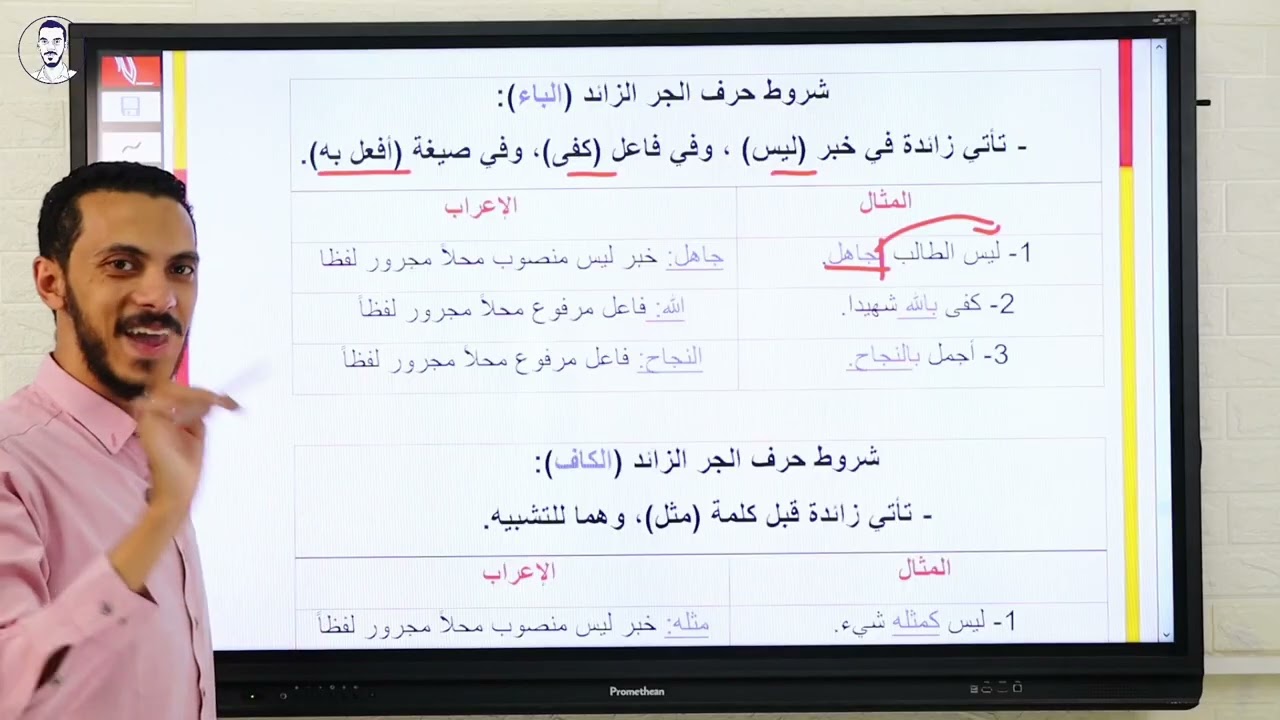 شروط حرف الجر الزائد (الباء):
- تأتي زائدة في خبر (ليس) ، وفي فاعل (كفى)، وفي صيغة (أفعل به).
المثال
الإعراب
1- ليس الطالب بجاهل.
جاهل: خبر ليس منصوب محلاً مجرور لفظا
2- كفى بالله شهيدا.
الله: فاعل مرفوع محلاً مجرور لفظاً
3- أجمل بالنجاح.
النجاح: فاعل مرفوع محلاً مجرور لفظاً
شروط حرف الجر الزائد (الكاف):
- تأتي زائدة قبل كلمة (مثل)، وهما للتشبيه.
المثال
الإعراب
1- ليس كمثله شيء.
مثله: خبر ليس منصوب محلاً مجرور لفظاً
Promethean